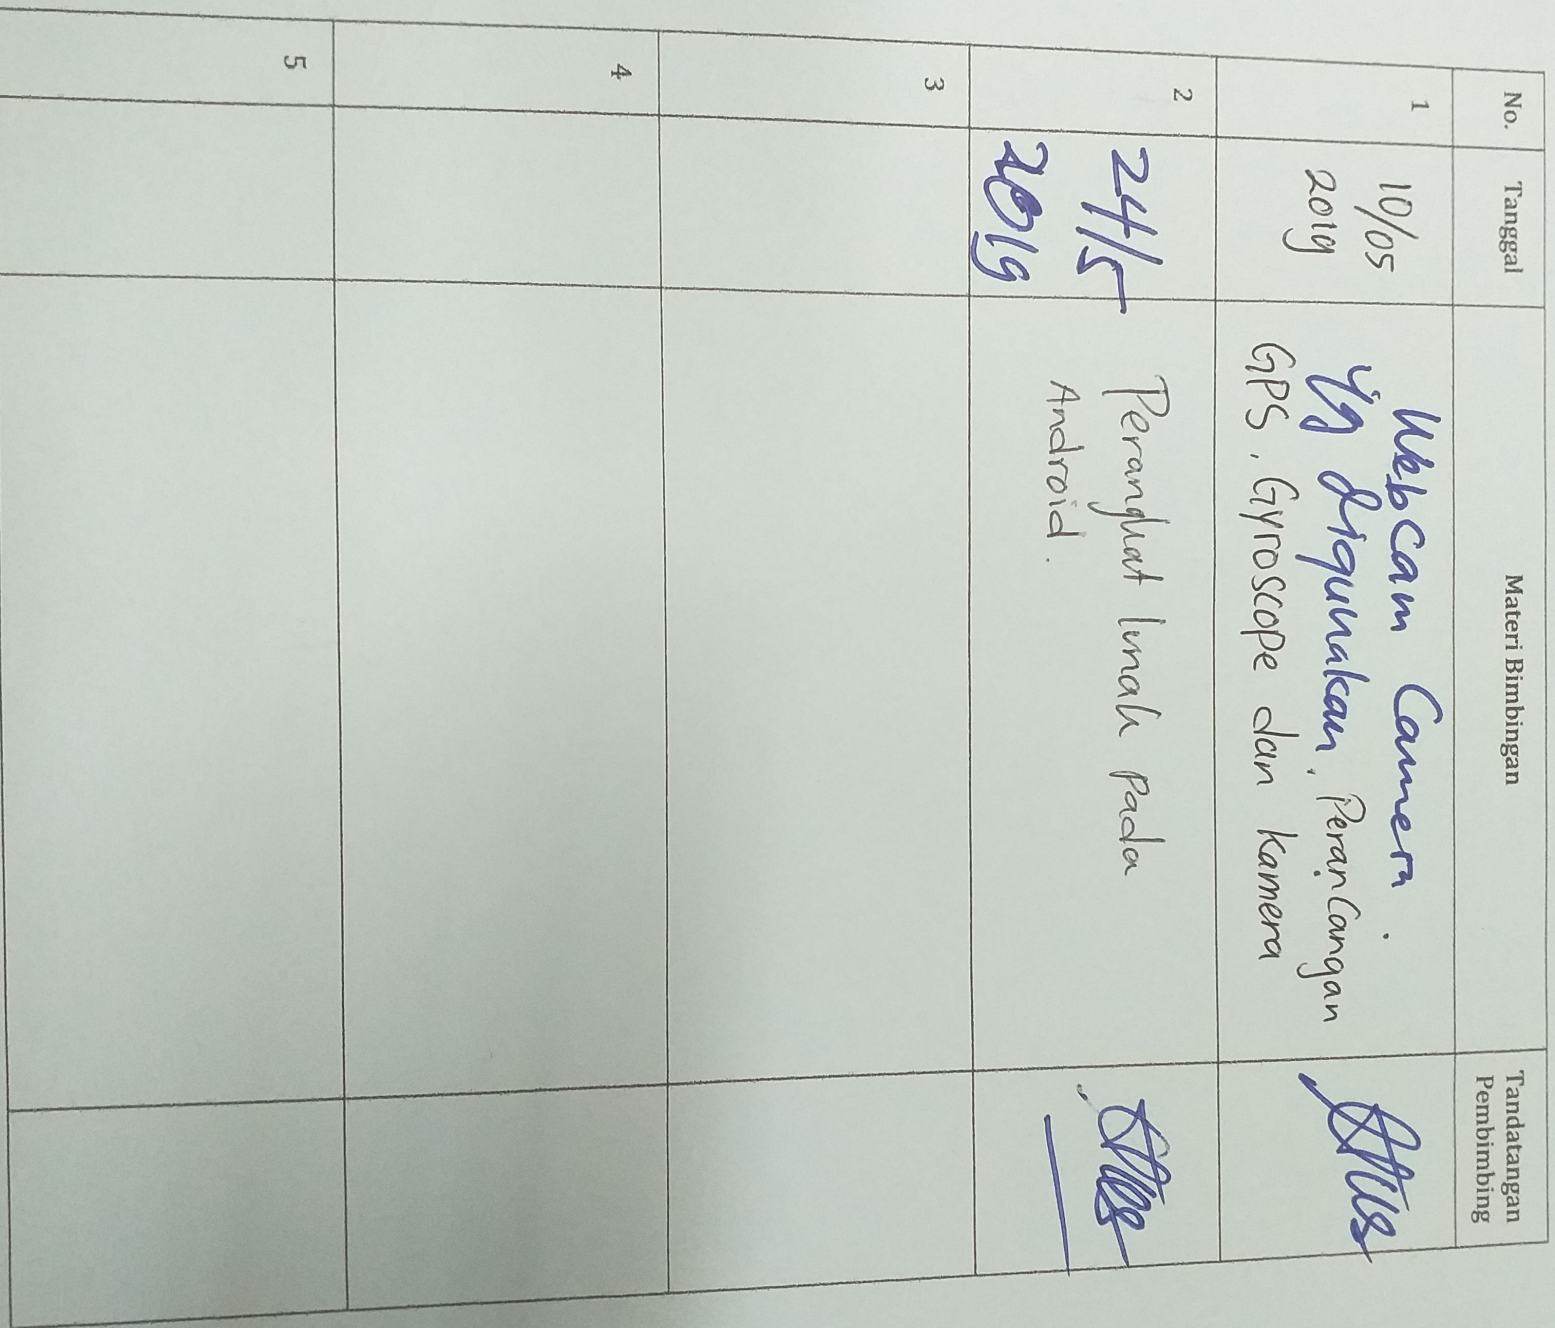 No.
Tanggal
Materi Bimbingan
Tandatangan
Pembimbing
1
10/05
2019
Webcam Camera.
yg digunakan, Perancangan
GPS, Gyroscope dan Kamera
2
24/5
2019
Perangkat lunak pada
Android.
3
4
5